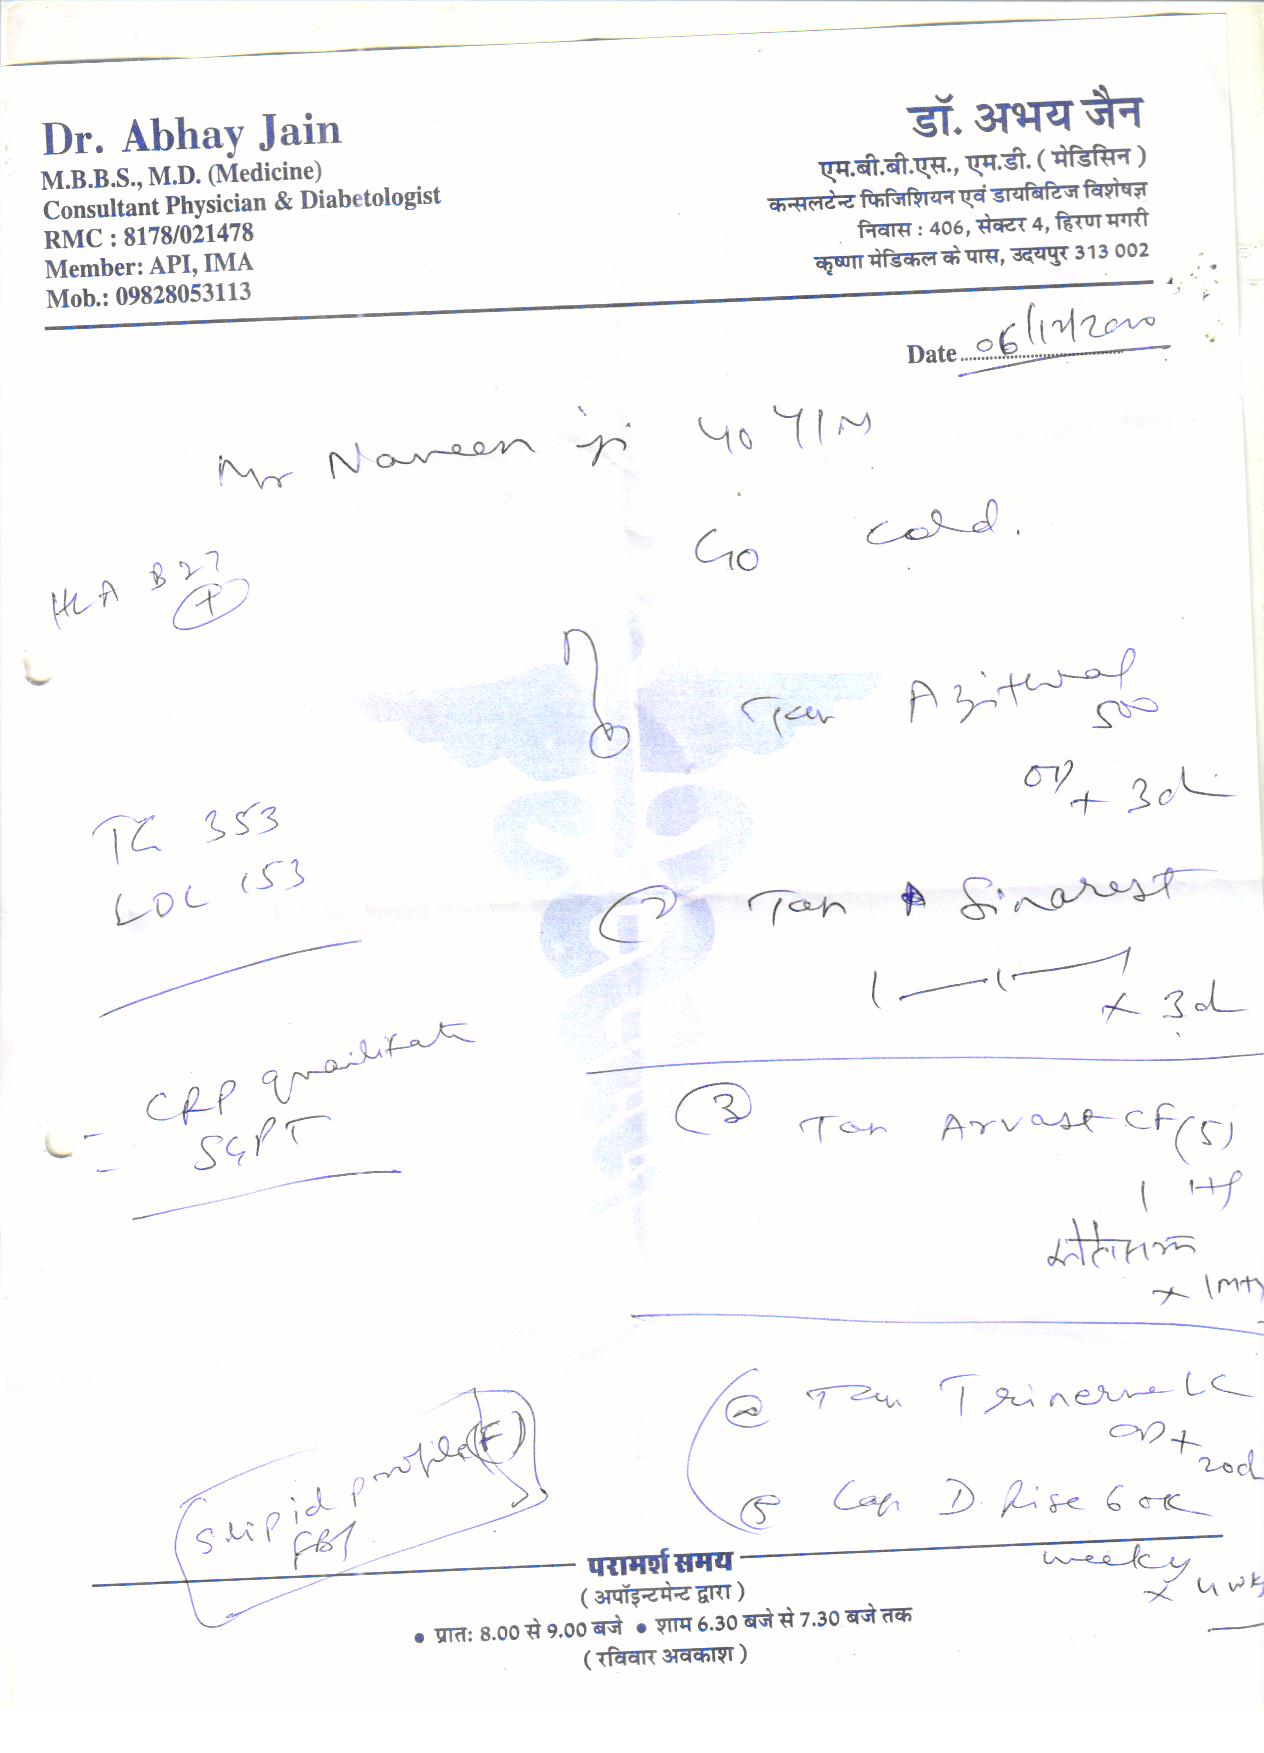 Dr. Abhay Jain
M.B.B.S., M.D. (Medicine)
Consultant Physician & Diabetologist
RMC : 8178/021478
Member: API, IMA
Mob.: 09828053113
डॉ. अभय जैन
एम.बी.बी.एस., एम.डी. ( मेडिसिन )
कन्सलटेन्ट फिजिशियन एवं डायबिटिज विशेषज्ञ
निवास : 406, सेक्टर 4, हिरण मगरी
कृष्णा मेडिकल के पास, उदयपुर 313 002
Date 06/12/2020
Mr Naveen ji 40 Y/M
C/o cold.
HLA B27
+
Tab Azithral
500
OD x 3d
TG 353
LDL 153
2 Tab Sinarest
1—1—1
x 3d
CRP
SGPT
3 Tab Arvast CF (5)
1 HS
x 1mth
Tab Trinerve LC
OD x
20d
5 Cap D. Rise 60K
weekly
x 4 wk
S. lipid profile (F)
FBS
परामर्श समय
( अपॉइन्टमेन्ट द्वारा )
• प्रातः 8.00 से 9.00 बजे • शाम 6.30 बजे से 7.30 बजे तक
( रविवार अवकाश )